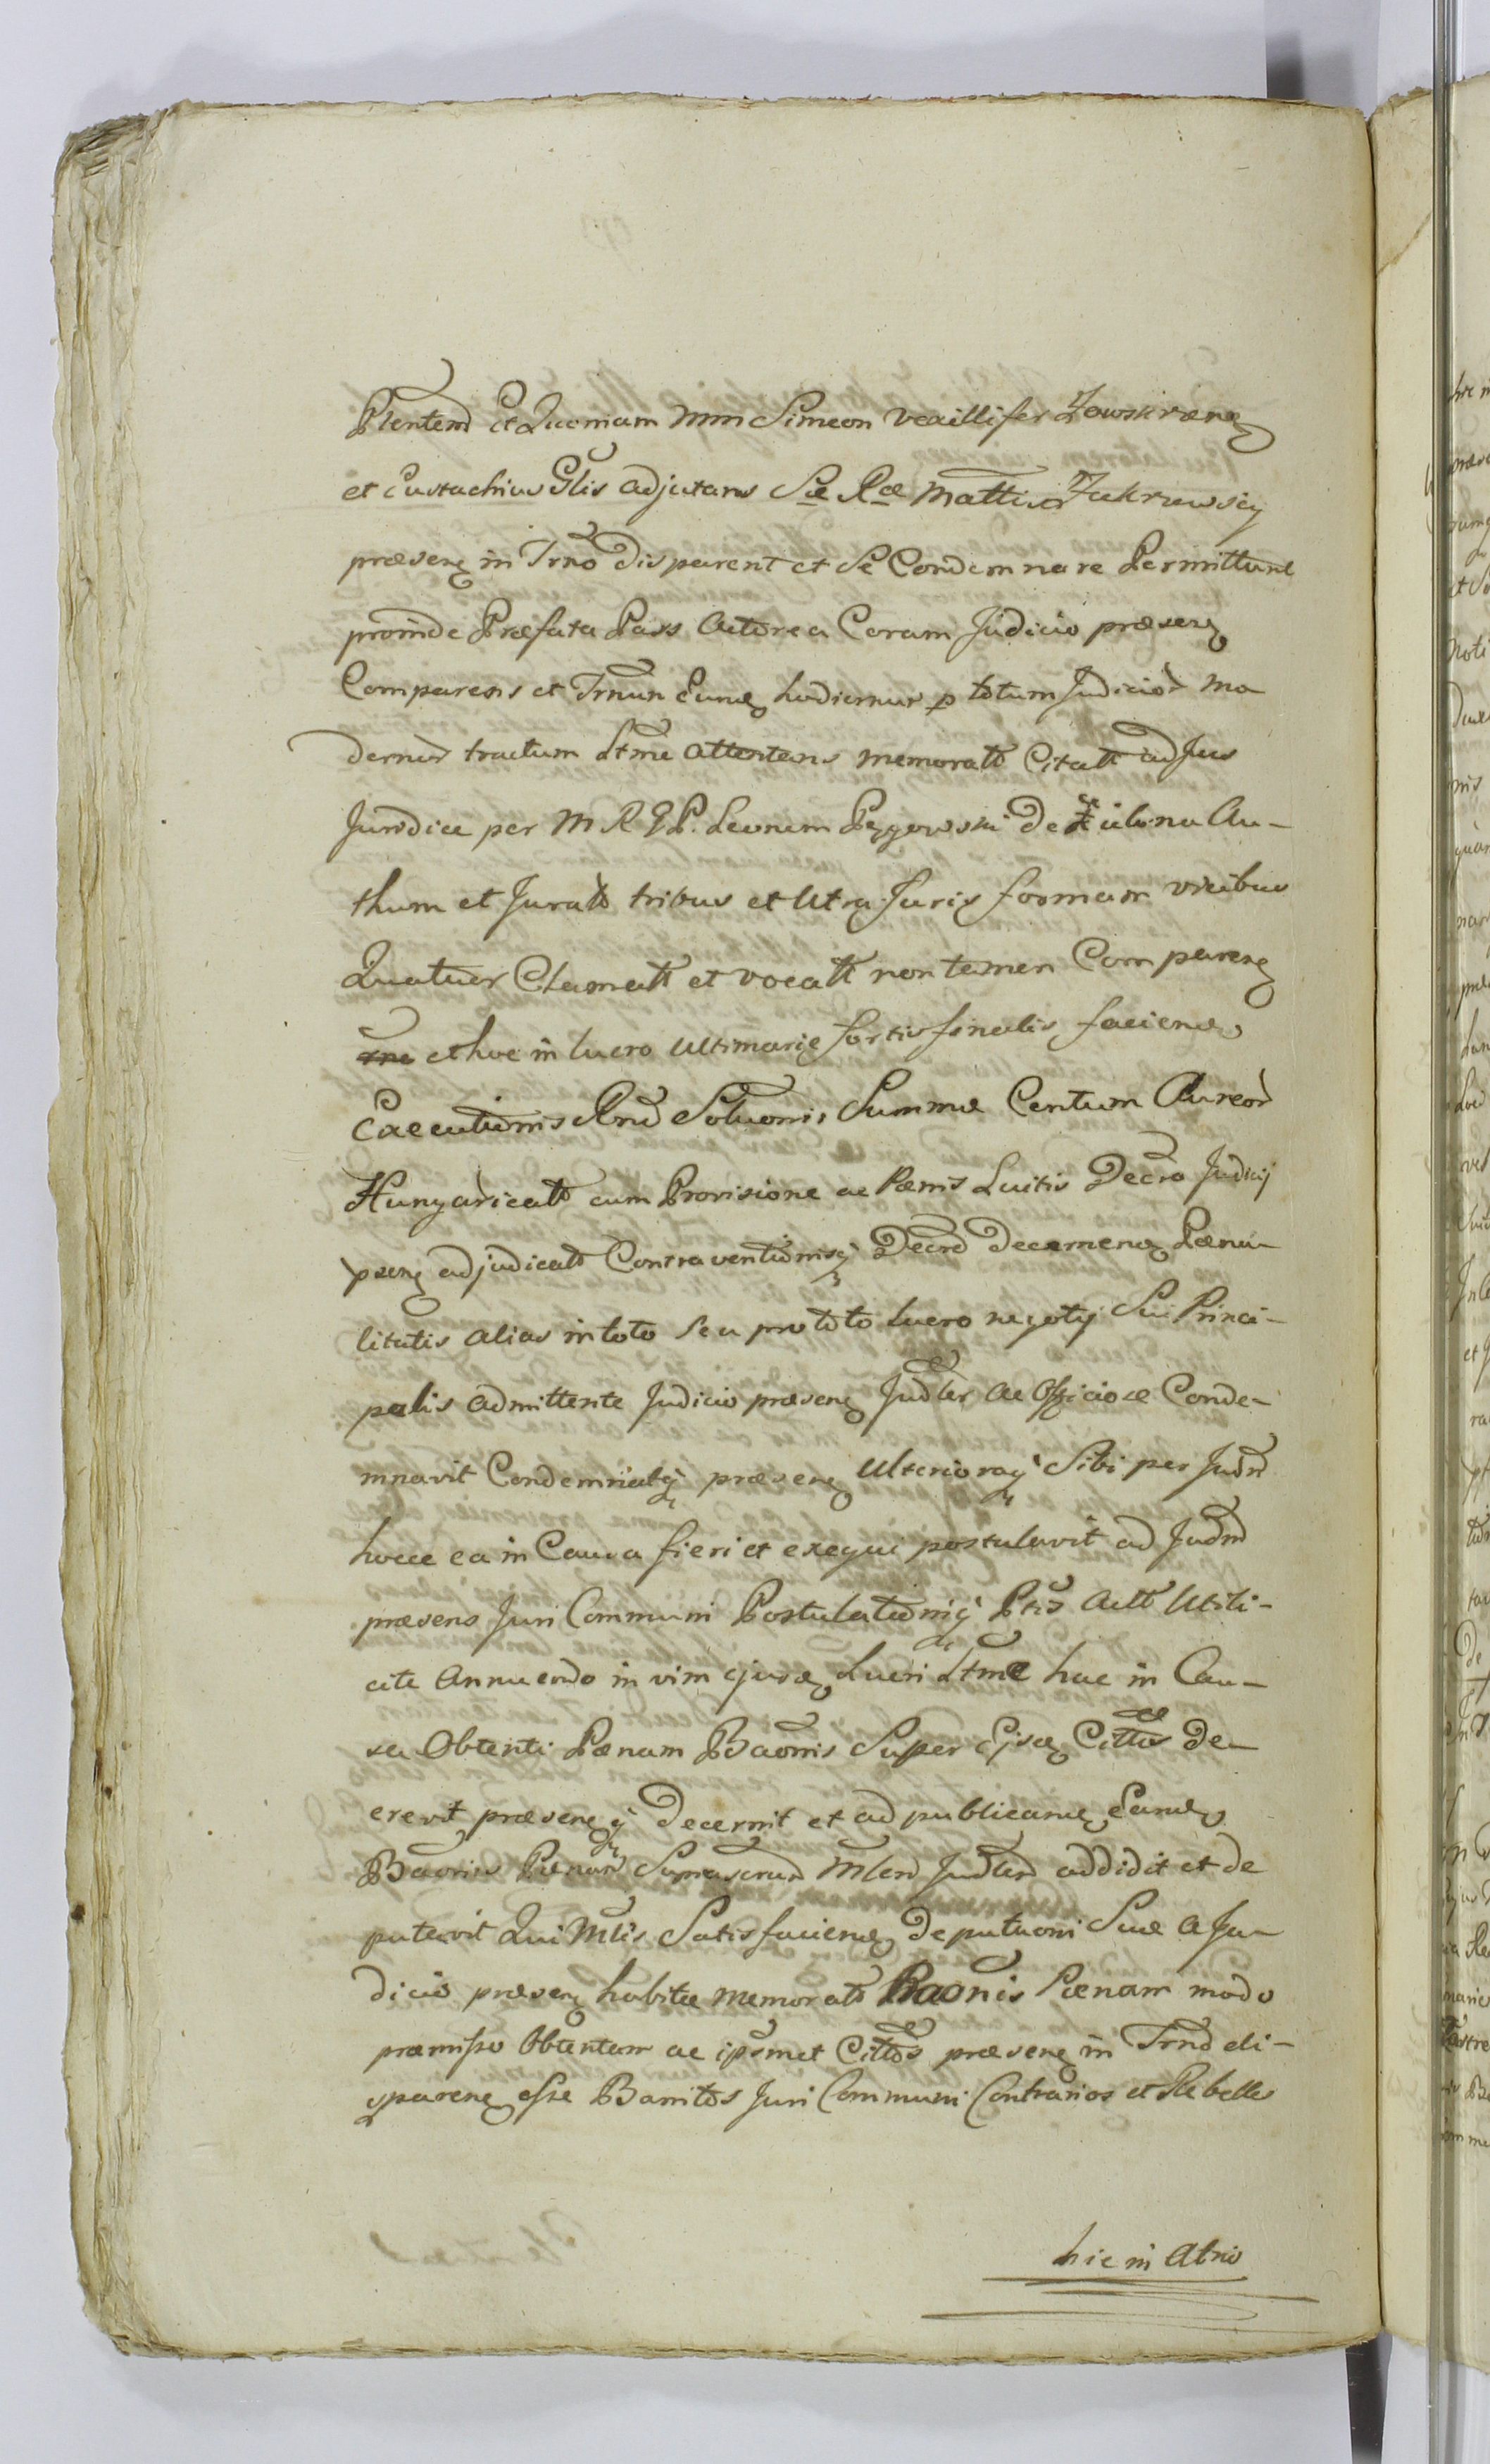 Ptentend Et Quoniam Mm Simeon Vexillifer Zawskrcens
et Eustachius Glis Adjutans Sæ Ræ Mattis Zakrzewscy
præsenq in Trno disparent et Se Condemnare Permittunt
proinde Præfata Pars Actorea Coram Judicio præsenq
Comparens et Trnun Eund hodiernur p totum Judicior mo
dernur tractum Ltme Attentans memoratt Citatt ad Jus
Juridice per M R G P. Leonem Pęgowski De Zielona Au-
thum et Juratt tribus et Utrq Juris formar vicibus
Quatuor Clamatt et vocatt non tamen Comparenq
et hoc in lucro Ultimarie Sortis finalis faciend
Executionis Rnd Solucnis Summæ Centum Aureor
Hungaricatt cum Provisione ac Pænis Luitis Decro Judicij
psenq adjudicatt Contraventionisq Decro Decernenq Pæna-
litatis alias in toto seu pro toto lucro negotij Sui Princi-
palis admittente Judicio præsenq Judler ac Officiose Conde-
mnavit Condemnatq præsenq Ulterioraq Sibi per Judm
hocce ea in Causa fieri et exequi postulavit ad Judm
præsens Juri Communi Postulationiq Ptis Actt Utili-
cite Annuendo in vim ejusd Lucri Ltme hac in Cau-
sa Obtenti Pænam Baonis Super Ejsd Cittos De-
crevit præsenqq Decernit et ad publicand Eand
Baonis Pænam Suprascrum Mlem Judlem addidit et de
putavit Qui Mlis Satisfaciend deputaoni Suæ a Ju-
dicio præsenq habitæ memoratt Baonis Pænam modo
præmisso Obtentam ac ipsmet Cittos præsenq in Trno di-
sparenq esse Bannitos Juri Communi Contrarios et Rebelles
hic in Atrio